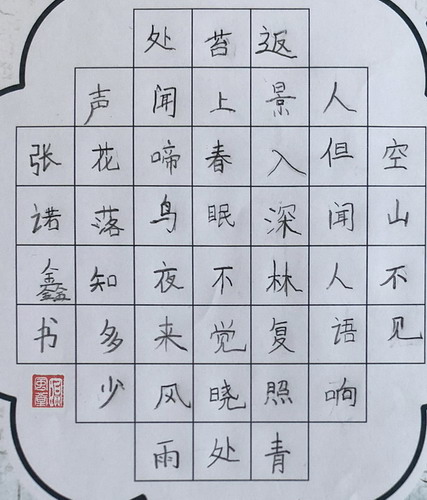 空山不见
人但闻人语响
返景入深林复照青
苔上春眠不觉晓处
处闻啼鸟夜来风雨
声花落知多少
张诺鑫书